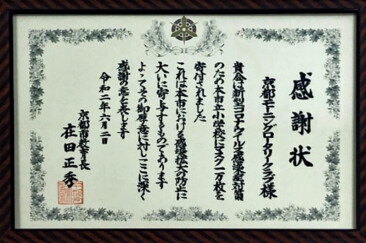 感謝状
京都モーニングロータリークラブ様
貴会は新型コロナウイルス感染症対策
のため本市立小学校にマスク一万枚を
寄付されました
これは本市における感染拡大の防止に
大いに寄与するものであります
よってその御厚意に対しここに深く
感謝の意を表します
令和二年六月二日
京都市教育長
在田正秀